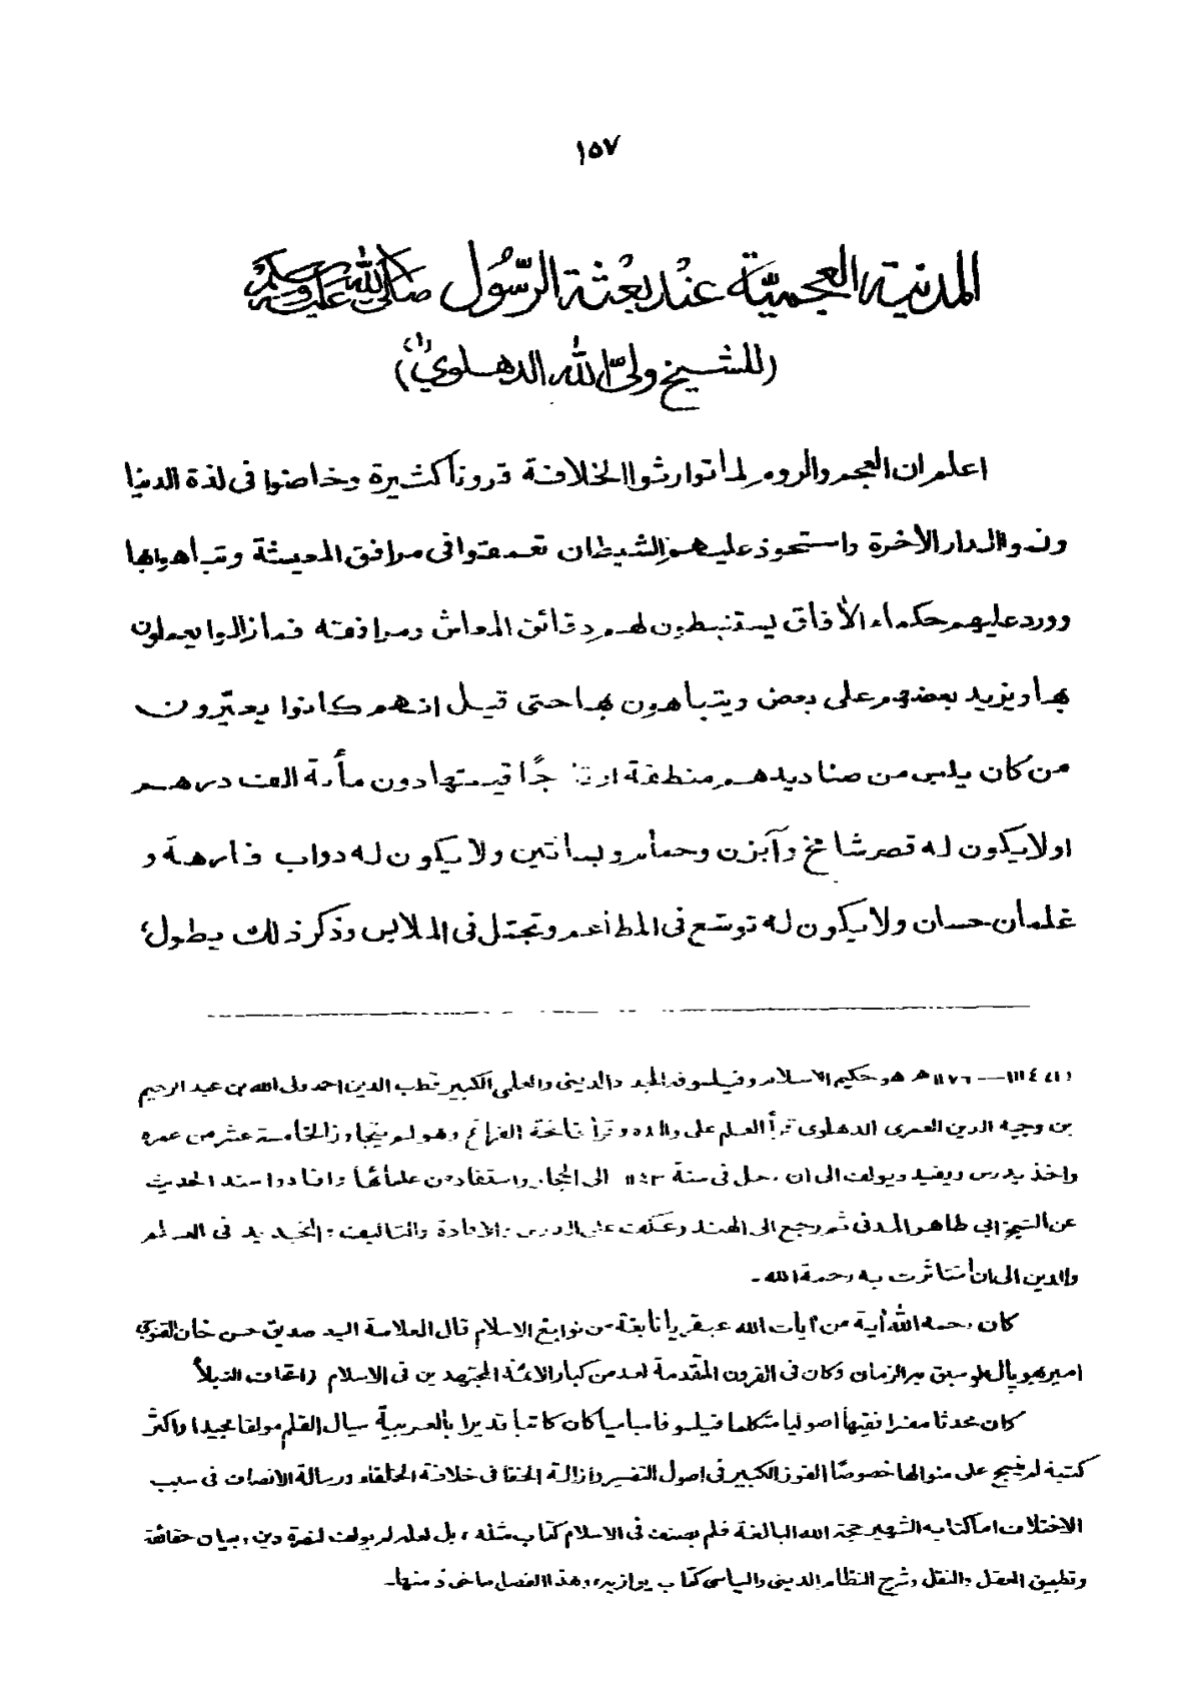 ١٥٧
المدنية العجمية عند بعثة الرسول صلى الله عليه وسلم
(للشيخ ولي الله الدهلوي (١))
اعلم ان العجم والروم لما توارثوا الخلافة قرونا كثيرة وخاضوا فى لذة الدنيا
ونسوا الدار الأخرة واستحوذ عليهم الشيطان تعمقوا فى مرافق المعيشة وتباهوا بها
وورد عليهم حكماء الأفاق يستنبطون لهم دقائق المعاش ومرافقه فمازالوا يعملون
بها ويزيد بعضهم على بعض ويتباهون بها حتى قيل انهم كانوا يعيّرون
من كان يلبس من صناديدهم منطقة او تاجًا قيمتها دون مأىة الف درهم
اولايكون له قصر شامخ وآبزن وحمام وبساتين ولايكون له دواب فارهة و
غلمان حسان ولايكون له توسّع فى المطاعم وتجمّل فى الملابس وذكر ذلك يطول،
(١) ١١١٤—١١٧٦ﻫ هو حكيم الاسلام وفيلسوفه المجدد الدينى والعلمى الكبير قطب الدين احمد ولى الله بن عبد الرحيم
بن وجيه الدين العمرى الدهلوى قرأ العلم على والده وقرأ فاتحة الفراغ وهو لم يتجاوز الخامسة عشر من عمره
واخذ يدرس ويفيد ويولف الى ان رحل فى سنة ١١٤٣ الى الحجاز واستفاد من علمائها وافادوا سند الحديث
عن الشيخ ابي طاهر المدنى ثم رجع الى الهند وعكف على الدرس والافادة والتاليف والتجديد فى العلم
والدين الى ان استاثرت به رحمة الله -
كان رحمه الله أية من آيات الله عبقريا نابغة من نوابغ الاسلام قال العلامة السيد صديق حسن خان القنوجي
امير بهوپال لو سبق به الزمان وكان فى القرون المتقدمة لعد من كبار الائمة المجتهدين فى الاسلام (اتحاف النبلأ)
كان محدثا مفسرا فقيها اصوليا متكلما فيلسوفا سياسيا كان كاتبا قديرا بالعربية سيال القلم مولفا مجيدا واكثر
كتبه لم ينسج على منوالها خصوصًا الفوز الكبير فى اصول التفسير وازالة الخفا فى خلافة الخلفاء ورسالة الانصاف فى سبب
الاختلاف اما كتابه الشهير حجة الله البالغة فلم يصنف فى الاسلام كتاب مثله، بل لعله لم يولف لنصرة دين وبيان حقائقه
وتطبيق العقل والنقل وشرح النظام الدينى والسياسى كتاب يوازيه، وهذا الفصل ماخوذ منها.